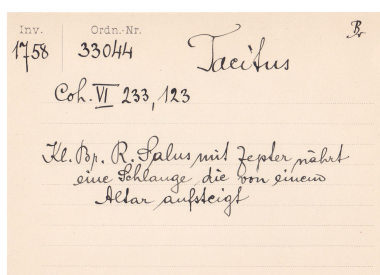 Inv. Ordn.-Nr. Br
1758 33044 Tacitus
Coh. VI 233, 123
Kl. Br. R. Salus mit Zepter nährt
eine Schlange die von einem
Altar aufsteigt